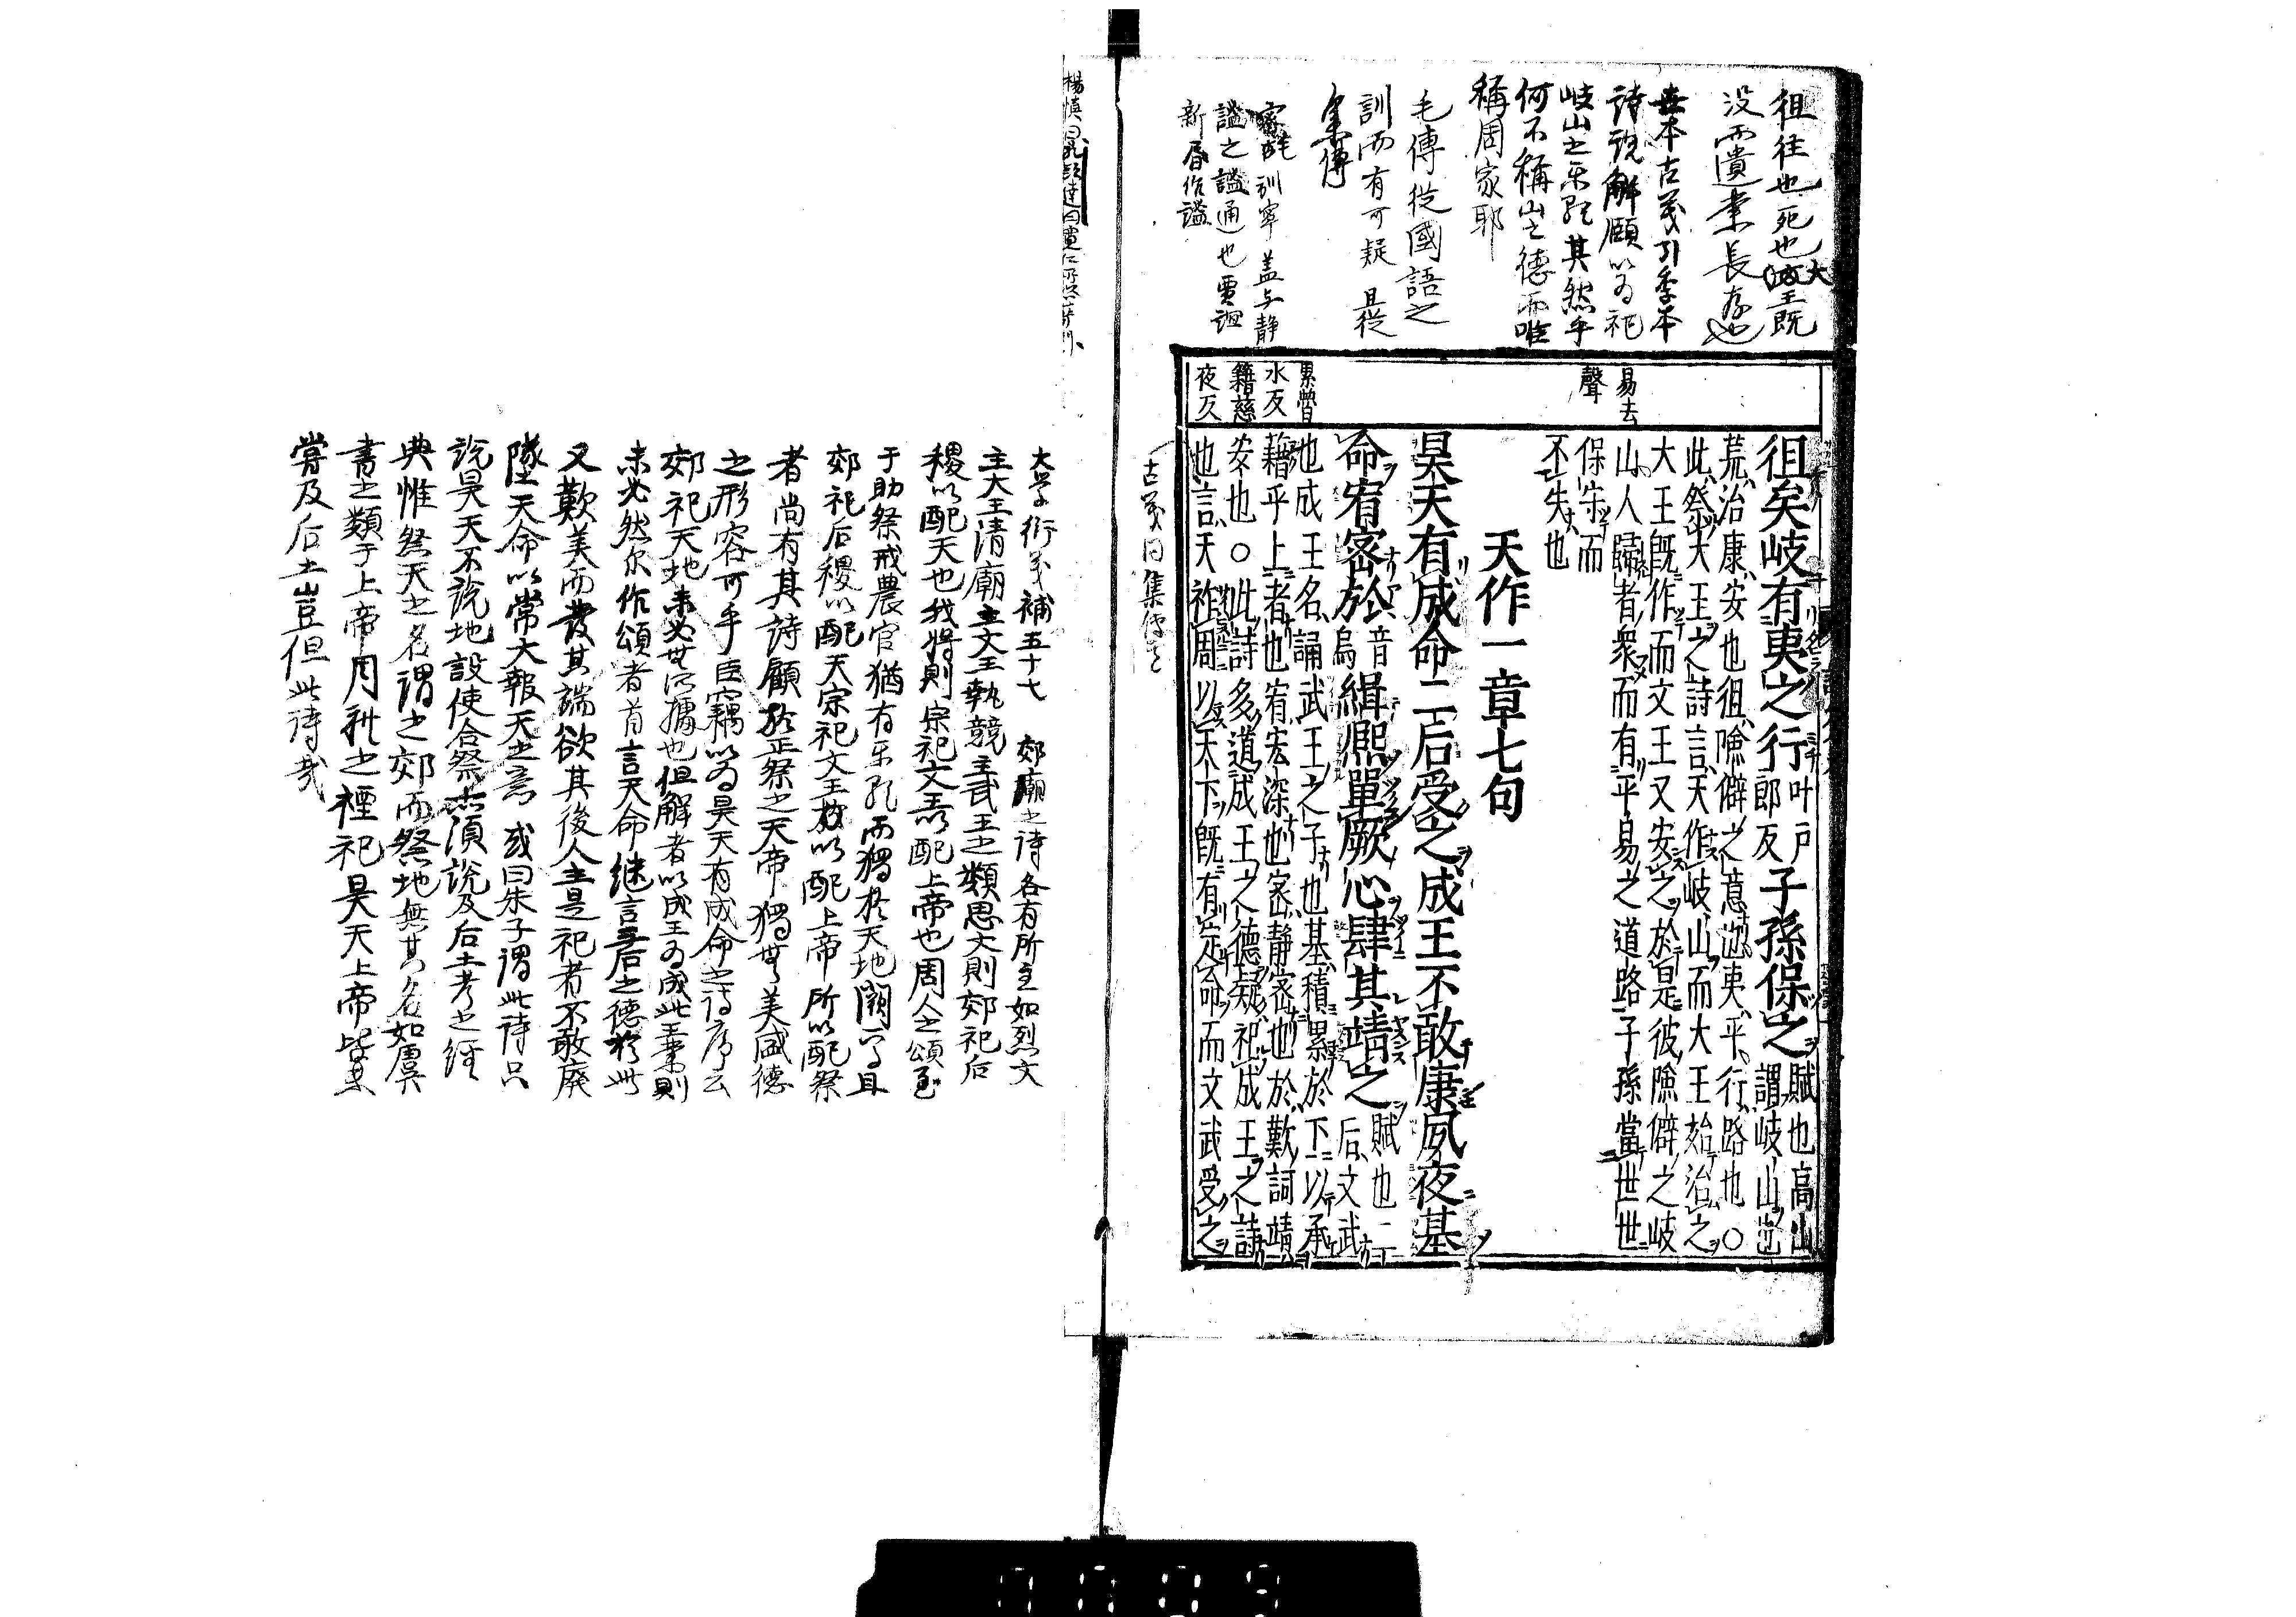 徂往也死也大王既
没而遺業長存也
世本古義引季本
詩説解頤以為祀
岐山之乐歌其然乎
何不稱山之德而唯
稱周家耶
毛傳從國語之
訓而有可疑且從
集傳
密毛訓寧盖与静
謐之謐通也賈誼
新書作謐
易去
聲
累曾
水反
籍慈
夜反
徂矣岐有夷之行叶戶郎反子孫保之賦也高山謂岐山也
荒治康安也徂險僻之意也夷平行路也○
此祭大王之詩言天作岐山而大王始治之
大王既作而文王又安之於是彼險僻之岐
山人歸者衆而有平易之道路子孫當世世
保守而
不失也
天作一章七句
昊天有成命二后受之成王不敢康夙夜基
命宥密於音烏緝熙單厥心肆其靖之賦也二后文武
也成王名誦武王之子也基積累於下以承
藉乎上者也宥宏深也密靜密也於歎詞靖
安也○此詩多道成王之德疑祀成王之詩
也言天祚周以天下既有定命而文武受之
古義同集傳之
大学衍義補五十七 郊廟之詩各有所主如烈文
主大王清廟主文王執競主武王之類思文則郊祀后
稷以配天也我將則宗祀文王以配上帝也周人之頌至
于助祭戒農官猶有乐歌而獨於天地闕焉且
郊祀后稷以配天宗祀文王以配上帝所以配祭
者尚有其詩顧於正祭之天帝獨無美盛德
之形容可乎臣竊以為昊天有成命之詩序云
郊祀天地未必無所據也但解者以成王為成此王業則
未必然尔作頌者首言天命継言二后之德於此
又歎美而發其端欲其後人主是祀者不敢廢
墜天命以常大報天之意 或曰朱子謂此詩只
説昊天不説地設使合祭亦須説及后土考之經
典惟祭天之名謂之郊而祭地無其名如虞
書之類于上帝周礼之禋祀昊天上帝皆未
嘗及后土豈但此詩哉